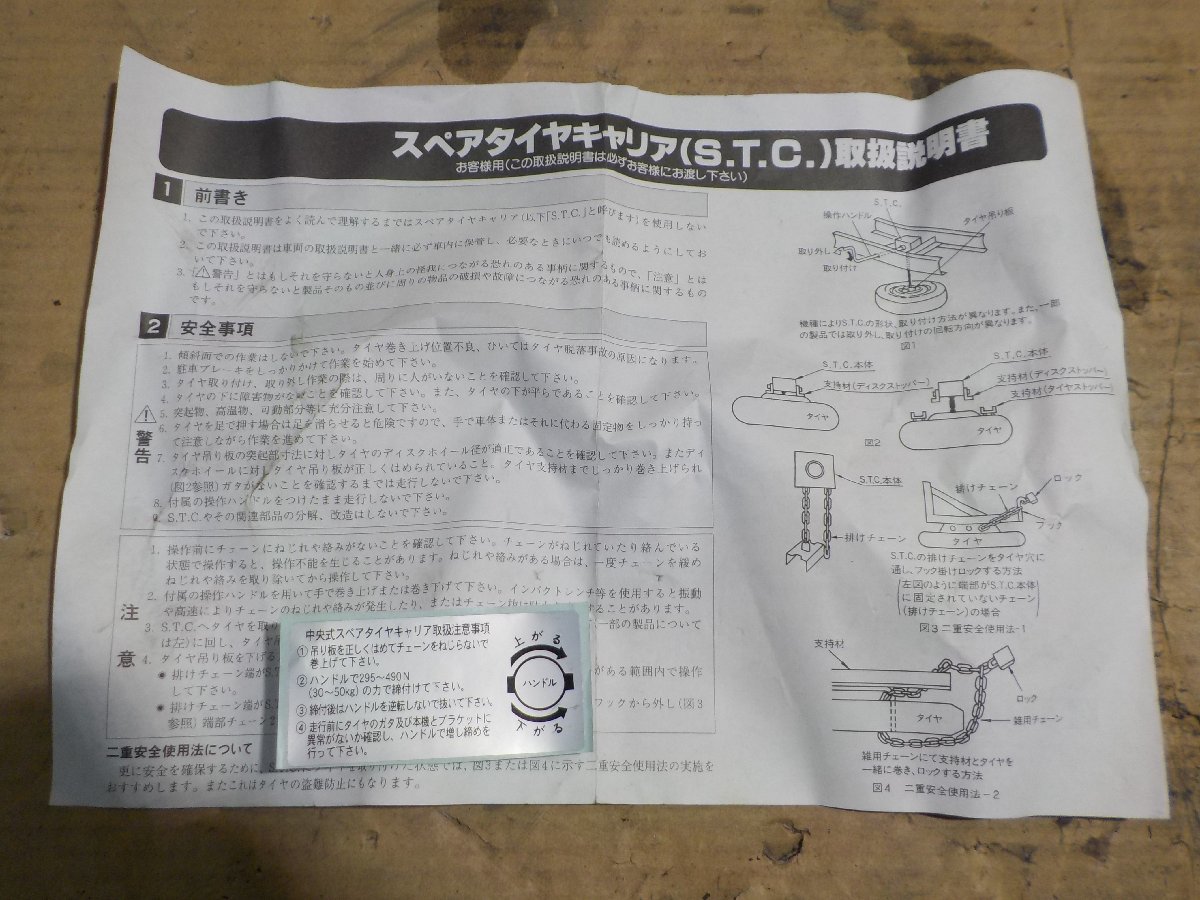 スペアタイヤキャリア(S.T.C.)取扱説明書
お客様用(この取扱説明書は必ずお客様にお渡し下さい)
1 前書き
1. この取扱説明書をよく読んで理解するまではスペアタイヤキャリア(以下「S.T.C.」と呼びます)を使用しない
で下さい。
2. この取扱説明書は車両の取扱説明書と一緒に必ず車内に保管し、必要なときにいつでも読めるようにしてお
いて下さい。
3. 「⚠警告」とはもしそれを守らないと人身上の怪我につながる恐れのある事柄に関するもので、「注意」とは
もしそれを守らないと製品そのもの並びに周りの物品の破損や故障につながる恐れのある事柄に関するもの
です。
2 安全事項
⚠警告
1. 傾斜面での作業はしないで下さい。タイヤ巻き上げ位置不良、ひいてはタイヤ脱落事故の原因になります。
2. 駐車ブレーキをしっかりかけて作業を始めて下さい。
3. タイヤ取り付け、取り外し作業の際は、周りに人がいないことを確認して下さい。
4. タイヤの下に障害物がないことを確認して下さい。また、タイヤの下が平らであることを確認して下さい。
5. 突起物、高温物、可動部分等に充分注意して下さい。
6. タイヤを足で押す場合は足を滑らせると危険ですので、手で車体またはそれに代わる固定物をしっかり持っ
て注意しながら作業を進めて下さい。
7. タイヤ吊り板の突起部寸法に対しタイヤのディスクホイール径が適正であることを確認して下さい。またディ
スクホイールに対しタイヤ吊り板が正しくはめられていること。タイヤ支持材までしっかり巻き上げられ
(図2参照)ガタがないことを確認するまでは走行しないで下さい。
8. 付属の操作ハンドルをつけたまま走行しないで下さい。
9. S.T.C.やその関連部品の分解、改造はしないで下さい。
注意
1. 操作前にチェーンにねじれや絡みがないことを確認して下さい。チェーンがねじれていたり絡んでいる
状態で操作すると、操作不能を生じることがあります。ねじれや絡みがある場合は、一度チェーンを緩め
ねじれや絡みを取り除いてから操作して下さい。
2. 付属の操作ハンドルを用いて手で巻き上げまたは巻き下げて下さい。インパクトレンチ等を使用すると振動
や高速によりチェーンのねじれや絡みが発生したり、またはチェーン することがあります。
3. S.T.C.へタイヤを取り 一部の製品について
は左)に回し、タイヤ
4. タイヤ吊り板を下げる がある範囲内で操作
● 排けチェーン端がS.T
して下さい。
● 排けチェーン端がS. フックから外し(図3
参照)端部チェーン2
二重安全使用法について
更に安全を確保するために、S. 取り付けた状態では、図3または図4に示す二重安全使用法の実施を
おすすめします。またこれはタイヤの盗難防止にもなります。
中央式スペアタイヤキャリア取扱注意事項
① 吊り板を正しくはめてチェーンをねじらないで
巻上げて下さい。
② ハンドルで295〜490N
(30〜50kg)の力で締付けて下さい。
③ 締付後はハンドルを逆転しないで抜いて下さい。
④ 走行前にタイヤのガタ及び本機とブラケットに
異常がないか確認し、ハンドルで増し締めを
行って下さい。
上がる
ハンドル
下がる
S.T.C.
操作ハンドル
タイヤ吊り板
取り外し
取り付け
機種によりS.T.C.の形状、取り付け方法が異なります。また、一部
の製品では取り外し、取り付けの回転方向が異なります。
図1
S.T.C.本体
支持材(ディスクストッパー)
タイヤ
S.T.C.本体
支持材(ディスクストッパー)
支持材(タイヤストッパー)
タイヤ
図2
S.T.C.本体
排けチェーン
排けチェーン
ロック
フック
タイヤ
S.T.C.の排けチェーンをタイヤ穴に
通し、フック掛けロックする方法
左図のように端部がS.T.C.本体
に固定されていないチェーン
(排けチェーン)の場合
図3 二重安全使用法-1
支持材
タイヤ
ロック
雑用チェーン
雑用チェーンにて支持材とタイヤを
一緒に巻き、ロックする方法
図4 二重安全使用法-2